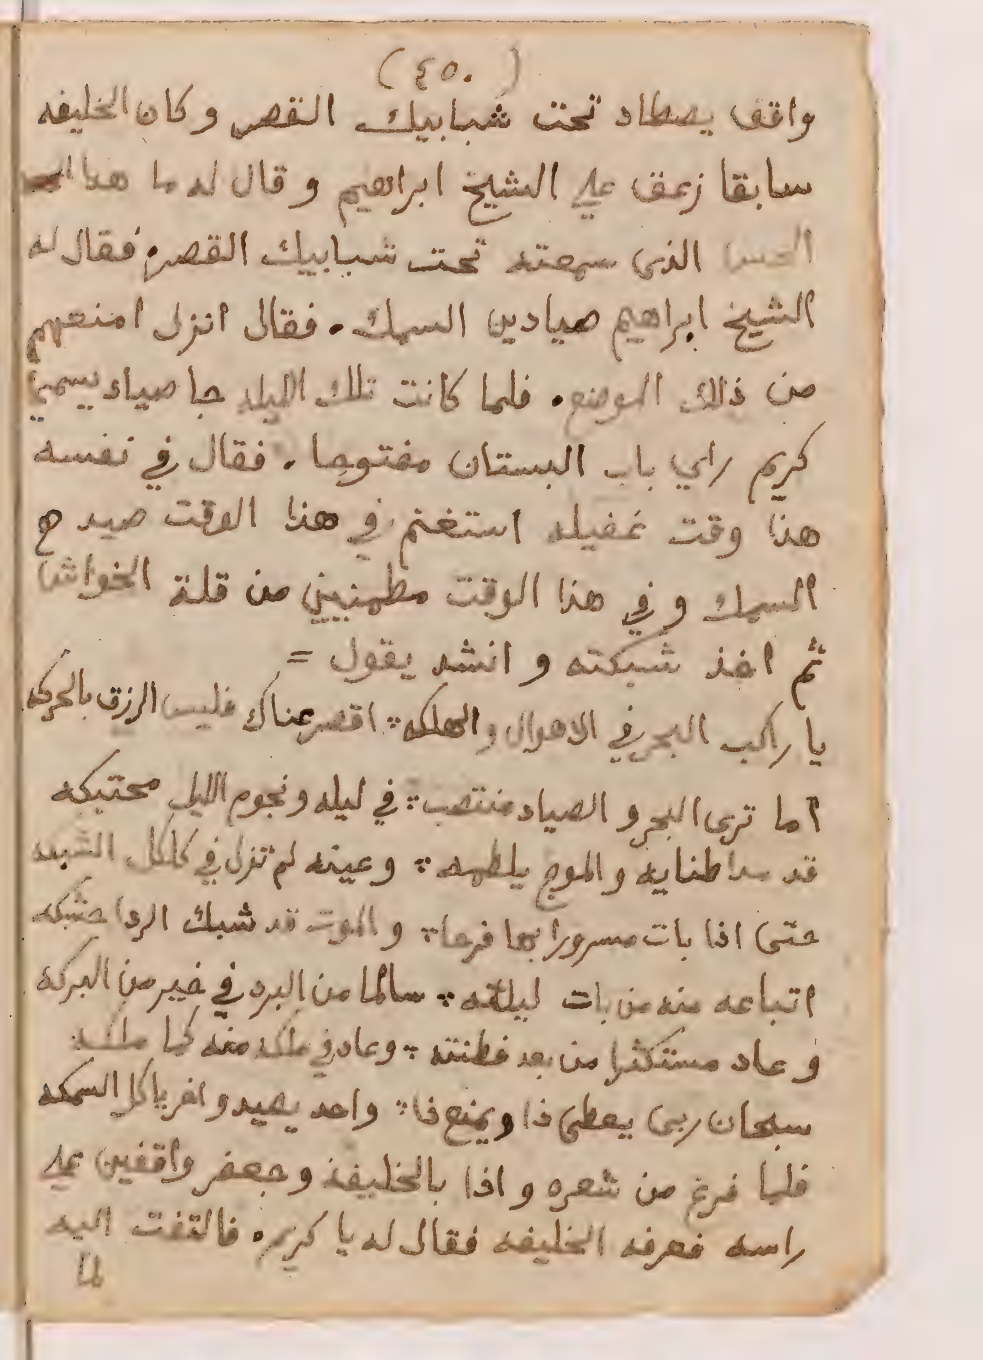 (٤٥٠)
واقف يصطاد تحت شبابيك القصر وكان الخليفه
سابقا زعق علي الشيخ ابراهيم وقال له ما هذا
الحس الذي سمعته تحت شبابيك القصر. فقال له
الشيخ ابراهيم صيادين السمك. فقال انزل امنعهم
من ذلك الموضع. فلما كانت تلك الليله جا صياد يسمي
كريم راي باب البستان مفتوحا. فقال في نفسه
هذا وقت غفيله استغنم في هذا الوقت صيد
السمك و في هذا الوقت مطمنيين من قلة
ثم اخذ شبكته و انشد يقول =
يا راكب البحر في الاهوال والهلكه ؞ اقصر عناك فليس الرزق بالحركه
اما ترى البحر و الصياد منتصب ؞ في ليله ونجوم الليل محتبكه
قد مد اطنابه والموج يلطمه ؞ وعينه لم تزل في كلكل الشبكه
حتى اذا بات مسرورا بها فرحا ؞ والموت قد شبك الردا
اتباعه منه من بات ليلته ؞ سالما من البرد في خير من البركه
و عاد مستكثرا من بعد فطنته ؞ وعاد في ملكه منه كما ملكه
سبحان ربى يعطى ذا ويمنع ذا ؞ واحد يصيد واخر ياكل السمكه
فلما فرغ من شعره و اذا بالخليفة وجعفر واقفين علي
راسه فعرفه الخليفه فقال له يا كريم. فالتفت اليه
لما